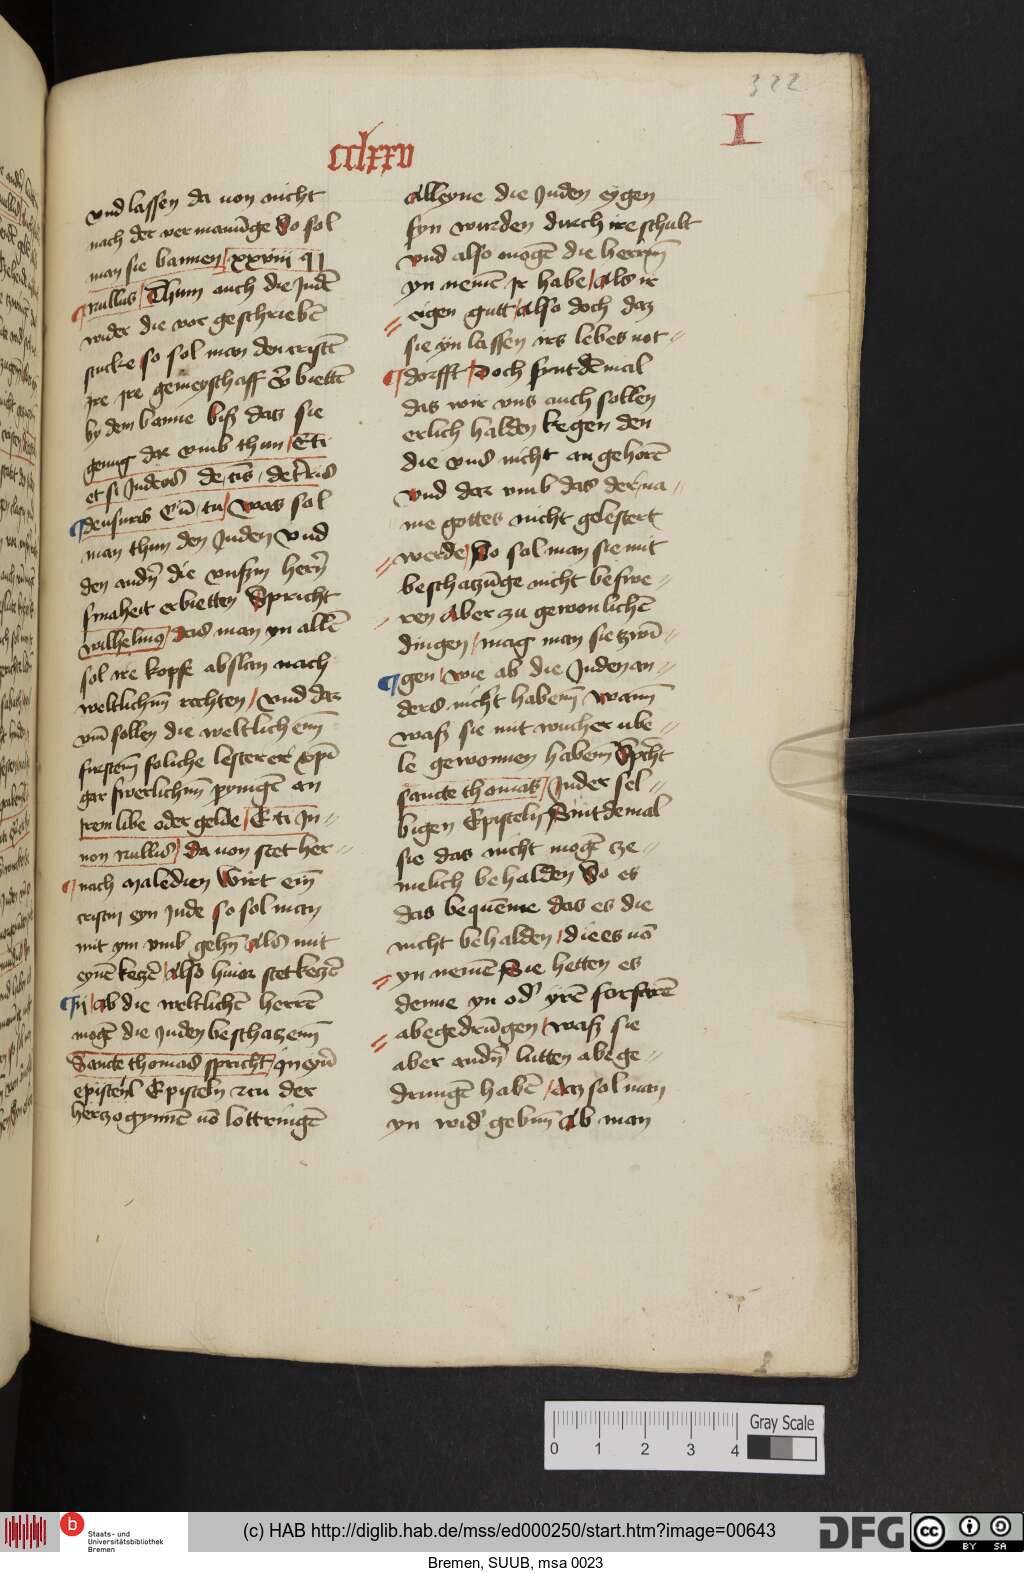 322
I
cclxxv
vnd lassen da von nicht
nach der vermanūge So sol
man sie bannen / xxviij q j
nullus / Thun auch die Judē
wider die vor geschriebē
stucke so sol man den cristē
jre gemeyschaff v̄ biettē
by dem banne biß das sie
genug dar vmb thun / Ex
et si Judeos de
was sol
man thun den Juden vnd
den andn̄ die vnßm hern̄
smaheit erbietten Spricht
wilhelmus / das man yn allē
sol ire kopfe abslan nach
weltlichm̄ rechten / vnd dar
vm̄ sollen die weltlichenn̄
furstenn̄ soliche lesterer xpī
gar swerlichm̄ pynigē an
irem libe oder gelde / Ex Jn
non nullis / da von stet her
nach Maledien Wirt ein̄
cristen eyn Jude so sol man
mit ym vmb gehn̄ Als mit
eynē ketzer / Also hinor stet ketzer
ij / ab die weltlichē herrē
mogē die Juden beschatzenn̄
Sancte thomas spricht / in eyn̄
Episteln zcu der
hertzogynnē vō lottringē
Alleyne die Juden eygen
syn wurden durch ire schult
vnd also mogē die herrnn̄
yn nemē jr habe / Als ir
eigen gutt / Also doch daz
sie yn lassen irs lebes not
dorfft / Doch sint dē mal
das wir vns auch sollen
erlich halden kegen den
die vns nicht an gehorē
vnd dar vmb das der na
me gottes nicht gelestert
werde / So sol man sie mit
beschatzūge nicht beswe
ren Aber zu gewonlichē
dingen / mag man sie tzwī
gen / wie ab die Juden an
ders nicht habenn̄ wann̄
waß sie mit wucher vbe
le gewonnen habenn̄ Sp̄cht
sancte thomas / Jn der sel
bigen Episteln Sint demal
sie das nicht mogē tze
melich behalden So es
das bequēme das es die
nicht behalden / die es vō
yn nemē Sie hetten es
denne yn od' yrē forfarē
abegedrūgen / waß sie
aber andn̄ lutten abe ge
drungē habē / Daz sol man
yn wid' gebnn̄ Ab man
0 1 2 3 4
Gray Scale
Staats- und
Universitätsbibliothek
Bremen
(c) HAB http://diglib.hab.de/mss/ed000250/start.htm?image=00643
DFG
cc BY SA
Bremen, SUUB, msa 0023